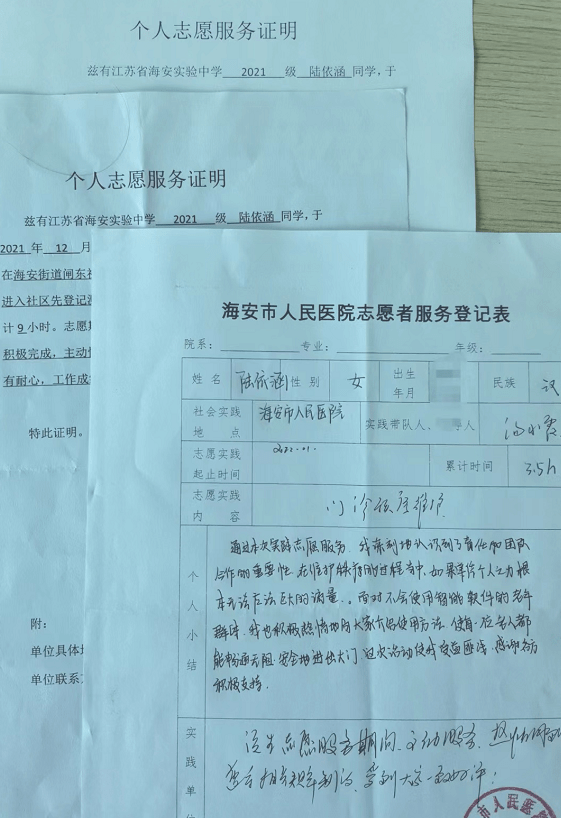 个人志愿服务证明
兹有江苏省海安实验中学 2021 级 陆依涵 同学，于
个人志愿服务证明
兹有江苏省海安实验中学 2021 级 陆依涵 同学，于
2021 年 12 月
在海安街道闸东社
进入社区先登记
计 9 小时。志愿
积极完成，主动
有耐心，工作成
特此证明。
附：
单位具体
单位联系
海安市人民医院志愿者服务登记表
院系： 专业： 年级：
姓名 陆依涵 性别 女 出生年月 民族 汉
社会实践地点 海安市人民医院 实践带队人、 人 汤小霞
志愿实践起止时间 2022.01. 累计时间 3.5h
志愿实践内容 门诊秩序维护
个人小结
通过本次实践志愿服务，我深刻地认识到了责任和团队
合作的重要性，在维护秩序的过程中，如果单凭个人之力根
本无法应法巨大的流量。面对不会使用智能软件的老年
群体，我也积极热情地向大家介绍使用方法，使每一位老人都
能畅通无阻，安全地进出大门，这次活动使我受益匪浅，感谢各方
积极支持。
实践单位
该生志愿服务期间，主动服务，热情
遵守相关规章制度，受到大家一致好评！
市人民医